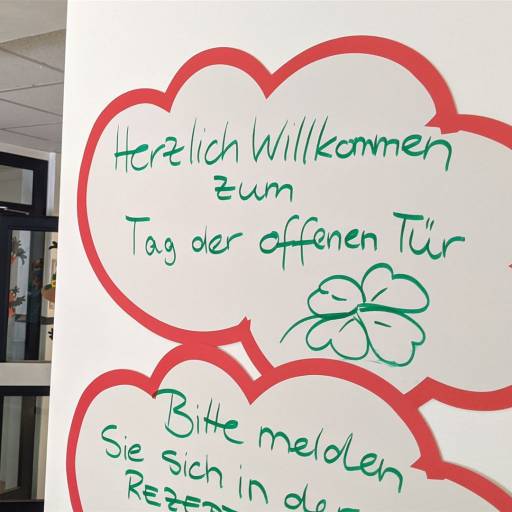 Herzlich Willkommen
zum
Tag der offenen Tür
Bitte melden
Sie sich in der